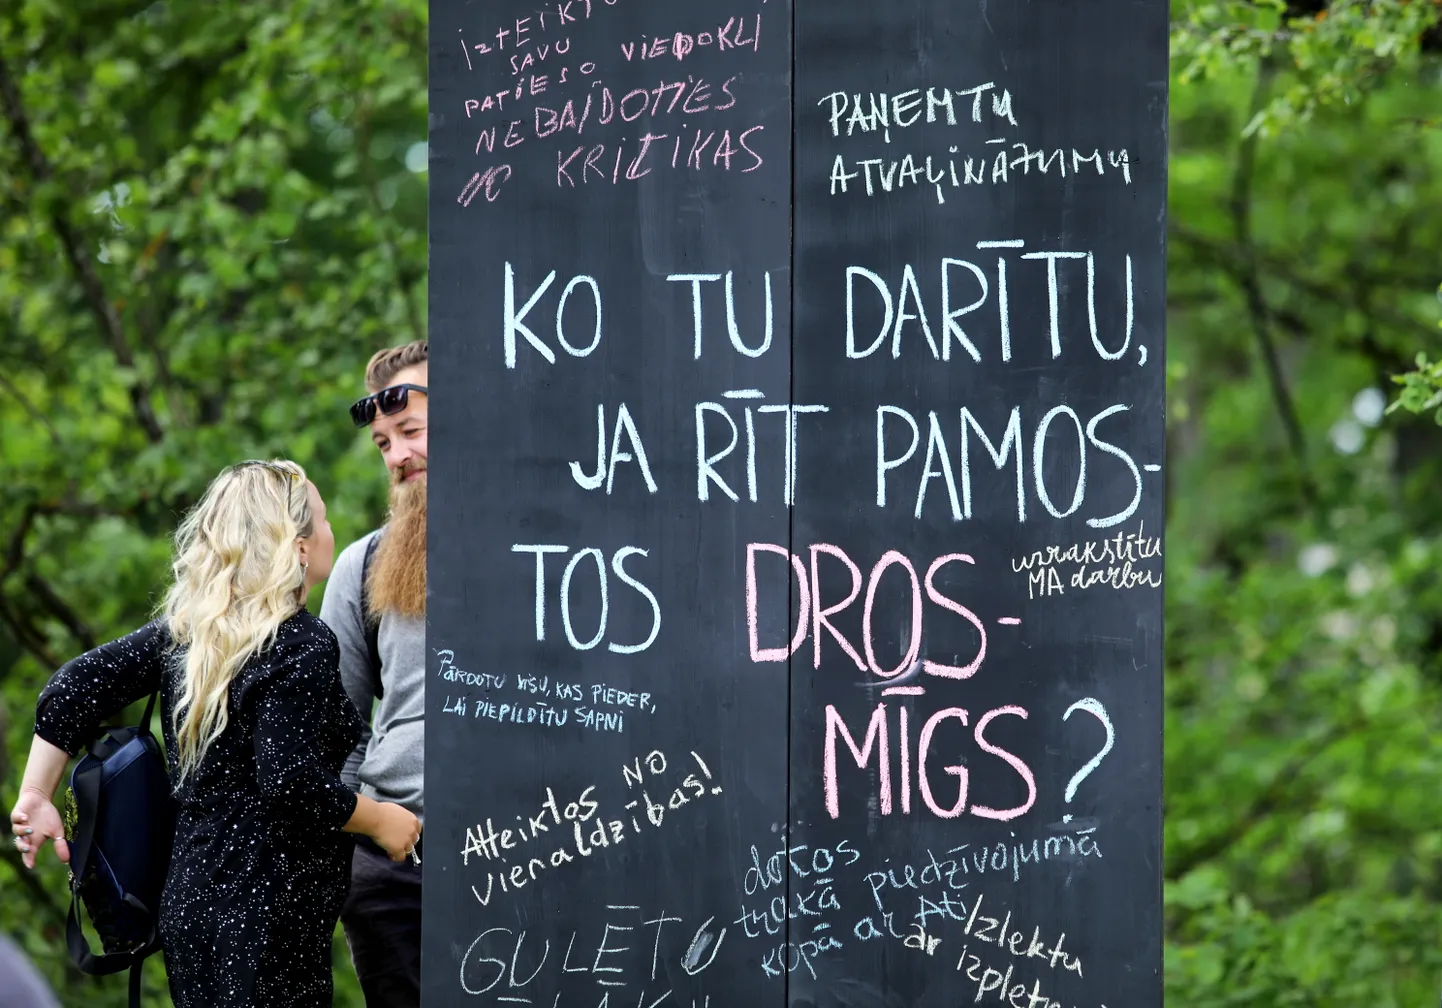 IZTEIKTU
SAVU
PATIESO VIEDOKLI
NEBAIDOTIES
NO KRITIKAS
PAŅEMTU
ATVAĻINĀJUMU
KO TU DARĪTU,
JA RĪT PAMOS-
TOS DROS-
MĪGS?
uzrakstītu
MA darbu
PĀRDOTU VISU, KAS PIEDER,
LAI PIEPILDĪTU SAPNI
Atteiktos NO
vienaldzības!
dotos piedzīvojumā
trakā
kopā ar Ati
Izlektu
ar
GULĒTU